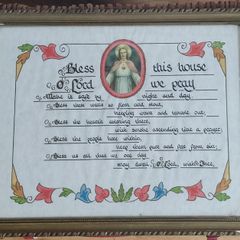 Bless this house
O Lord we pray
Make it safe by night and day.
Bless these walls so firm and stout,
keeping want and trouble out,
Bless the
with smoke ascending like a prayer,
Bless the people here within
keep them pure and free from sin,
Bless us all that we one day
may dwell, O Lord, with Thee.